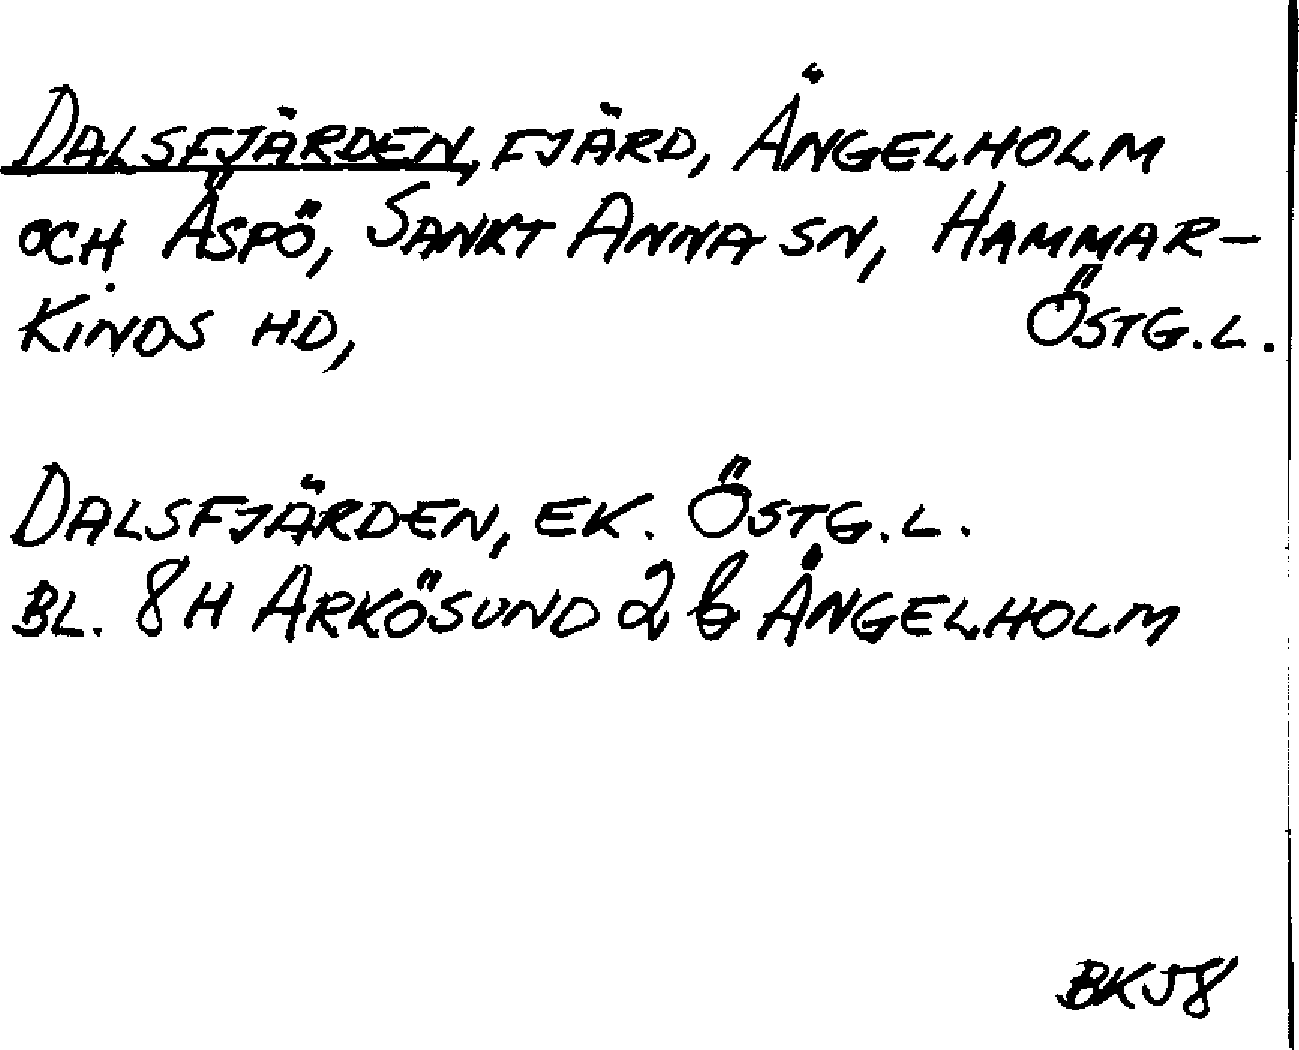 DALSFJÄRDEN, FJÄRD, ÄNGELHOLM
OCH ÄSPÖ, SANKT ANNA SN, HAMMAR-
KINDS HD, ÖSTG.L.
DALSFJÄRDEN, EK. ÖSTG.L.
BL. 8H ARKÖSUND 2 b ÄNGELHOLM
BK58